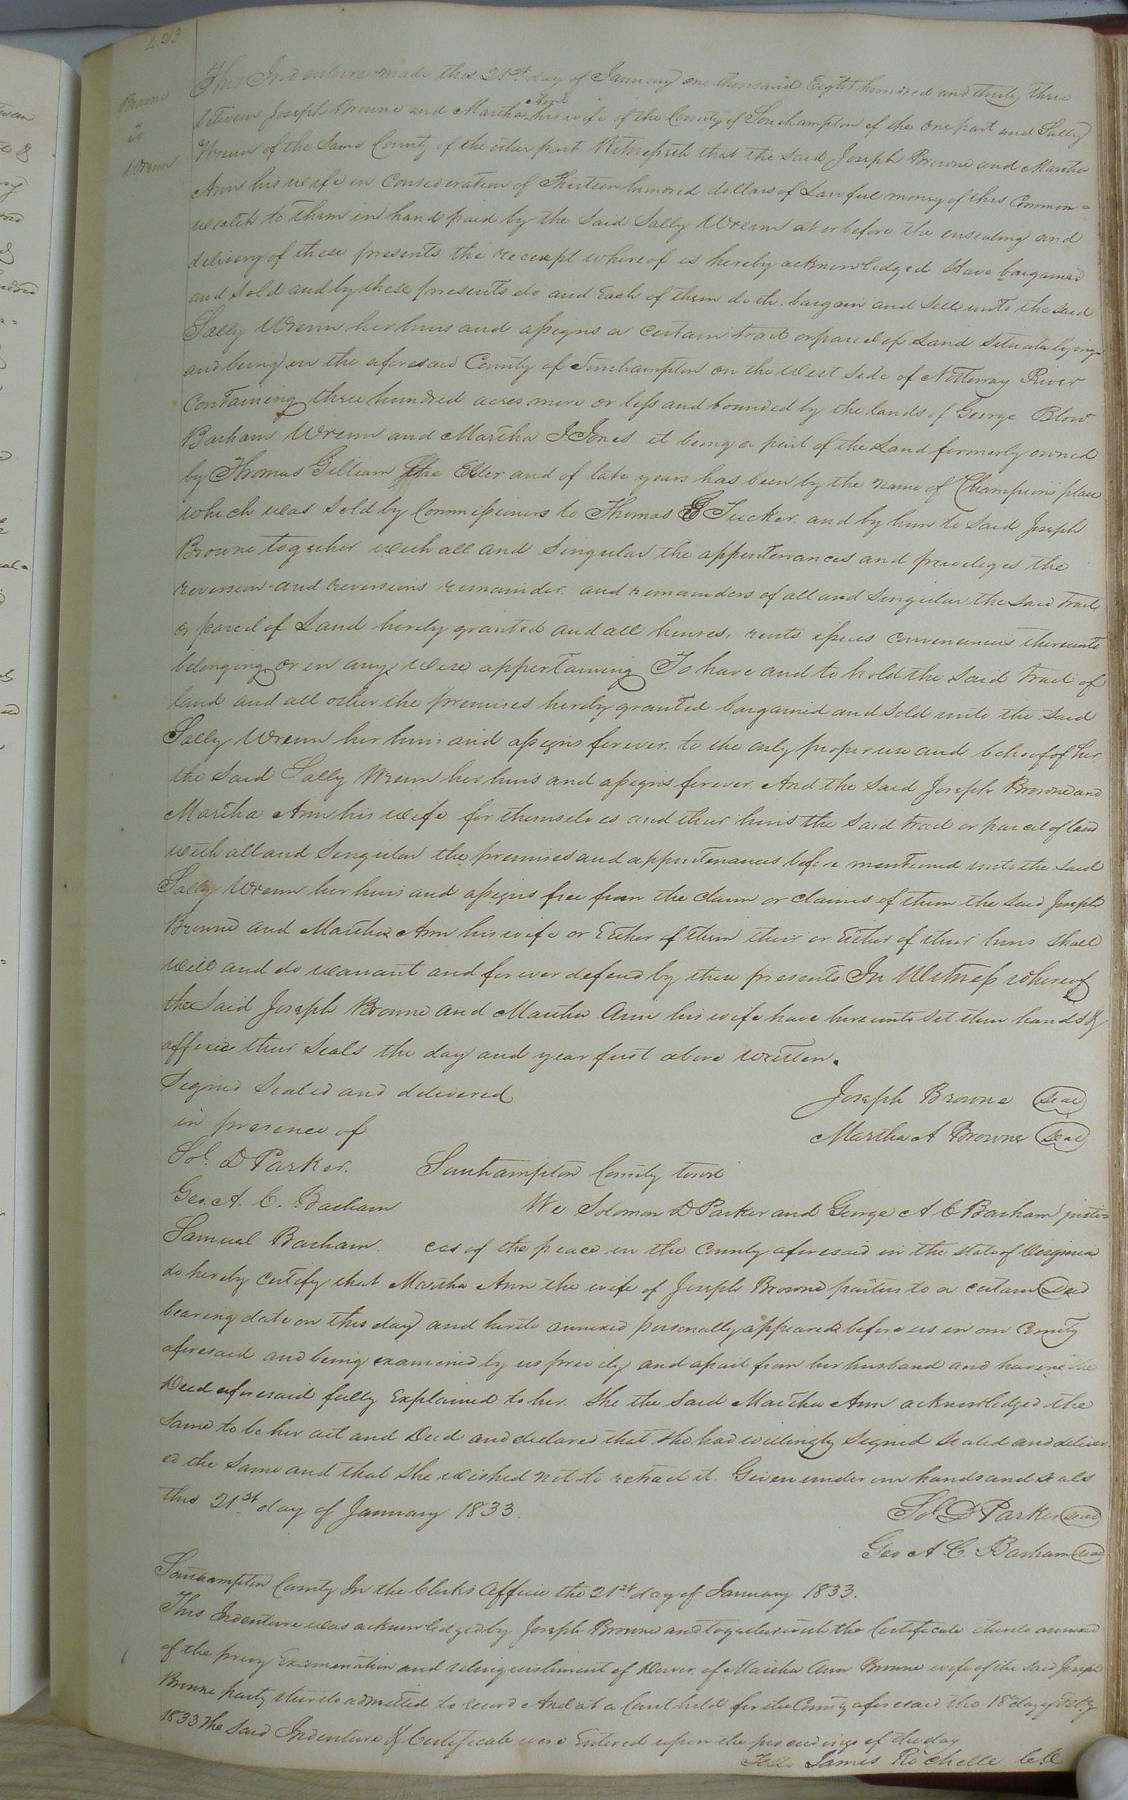 423
Browne
To
Wrenn
This Indenture made this 21st day of January one thousand Eight hundred and thirty three
between Joseph Browne and Martha Ann his wife of the County of Southampton of the one part and Sally
Wrenn of the Same County of the other part Witnesseth that the said Joseph Browne and Martha
Ann his wife in Consideration of Thirteen hundred dollars of Lawful money of this Common=
wealth to them in hand paid by the Said Sally Wrenn at or before the ensealing and
delivery of these presents the receipt whereof is hereby acknowledged Have bargained
and Sold and by these presents do and Each of them doth bargain and Sell unto the said
Sally Wrenn her heirs and assigns a Certain tract or parcel of Land Situate lying
and being in the aforesaid County of Southampton on the West Side of Nottoway River
Containing three hundred acres more or less and bounded by the lands of George Blow
Barham Wrenn and Martha J Jones it being a part of the Land formerly owned
by Thomas Gilliam the Elder and of late years has been by the name of Champion's place
which was Sold by Commissioners to Thomas E Tucker and by him to Said Joseph
Browne together with all and Singular the appurtenances and privileges the
reversion and reversions remainder and remainders of all and Singular the Said Tract
or parcel of Land hereby granted and all houses, rents issues conveniences thereunto
belonging or in any wise appertaining To have and to hold the Said Tract of
land and all other the premises hereby granted bargained and Sold unto the Said
Sally Wrenn her heirs and assigns forever to the only proper use and behoof of her
the Said Sally Wrenn her heirs and assigns forever And the Said Joseph Browne and
Martha Ann his wife for themselves and their heirs the Said tract or parcel of land
with all and Singular the premises and appurtenances before mentioned unto the Said
Sally Wrenn her heirs and assigns free from the claim or claims of them the Said Joseph
Browne and Martha Ann his wife or Either of them their or Either of their heirs Shall
will and do warrant and forever defend by these presents In Witness whereof
the Said Joseph Browne and Martha Ann his wife have hereunto Set their hands &
affixed their Seals the day and year first above written.
Signed Sealed and delivered
in presence of
Joseph Browne Seal
Martha A Browne Seal
Sol. D Parker.
Geo. A. C. Barham
Samuel Barham
Southampton County towit
We Solomon D Parker and George A C Barham justi=
ces of the peace in the County aforesaid in the State of Virginia
do hereby Certify that Martha Ann the wife of Joseph Browne parties to a certain Deed
bearing date on this day and hereto annexed personally appeared before us in our County
aforesaid and being examined by us privily and apart from her husband and having the
Deed aforesaid fully Explained to her She the Said Martha Ann acknowledged the
Same to be her act and Deed and declared that She had willingly Signed Sealed and deliver
ed the Same and that She wished not to retract it. Given under our hands and Seals
this 21st day of January 1833.
Sol D Parker Seal
Geo A. C. Barham Seal
Southampton County In the Clerks Office the 21st day of January 1833.
This Indenture was acknowledged by Joseph Browne and together with the Certificate thereto annexed
of the privy Examination and relinquishment of Dower of Martha Ann Browne wife of the Said Joseph
Browne party thereto admitted to record And at a Court held for the County aforesaid the 18th day of Feby
1833 The Said Indenture & Certificate were Entered upon the proceedings of the day
Teste James Rochelle C.C